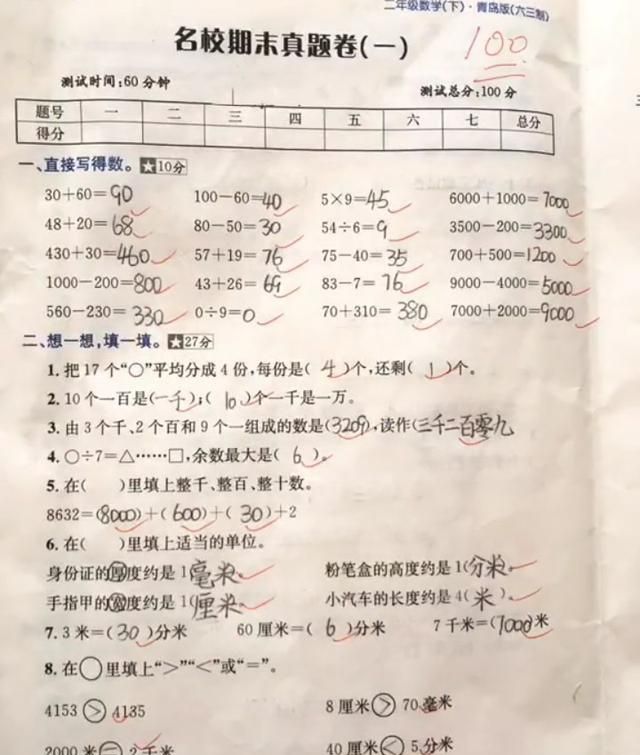 二年级数学(下)·青岛版(六三制)
名校期末真题卷(一) 100
测试时间:60分钟 测试总分:100分
题号 一 二 三 四 五 六 七 总分
得分
一、直接写得数。★10分
30+60=90 100-60=40 5×9=45 6000+1000=7000
48+20=68 80-50=30 54÷6=9 3500-200=3300
430+30=460 57+19=76 75-40=35 700+500=1200
1000-200=800 43+26=69 83-7=76 9000-4000=5000
560-230=330 0÷9=0 70+310=380 7000+2000=9000
二、想一想,填一填。★27分
1.把17个“○”平均分成4份,每份是(4)个,还剩(1)个。
2.10个一百是(一千);(10)个一千是一万。
3.由3个千、2个百和9个一组成的数是(3209),读作(三千二百零九
4.○÷7=△……□,余数最大是(6)。
5.在( )里填上整千、整百、整十数。
8632=(8000)+(600)+(30)+2
6.在( )里填上适当的单位。
身份证的厚度约是1(毫米 粉笔盒的高度约是1(分米)。
手指甲的宽度约是1(厘米 小汽车的长度约是4(米)。
7.3米=(30)分米 60厘米=(6)分米 7千米=(7000)米
8.在○里填上“>”“<”或“=”。
4153>4135 8厘米>70毫米
2000米=2千米 40厘米<5分米